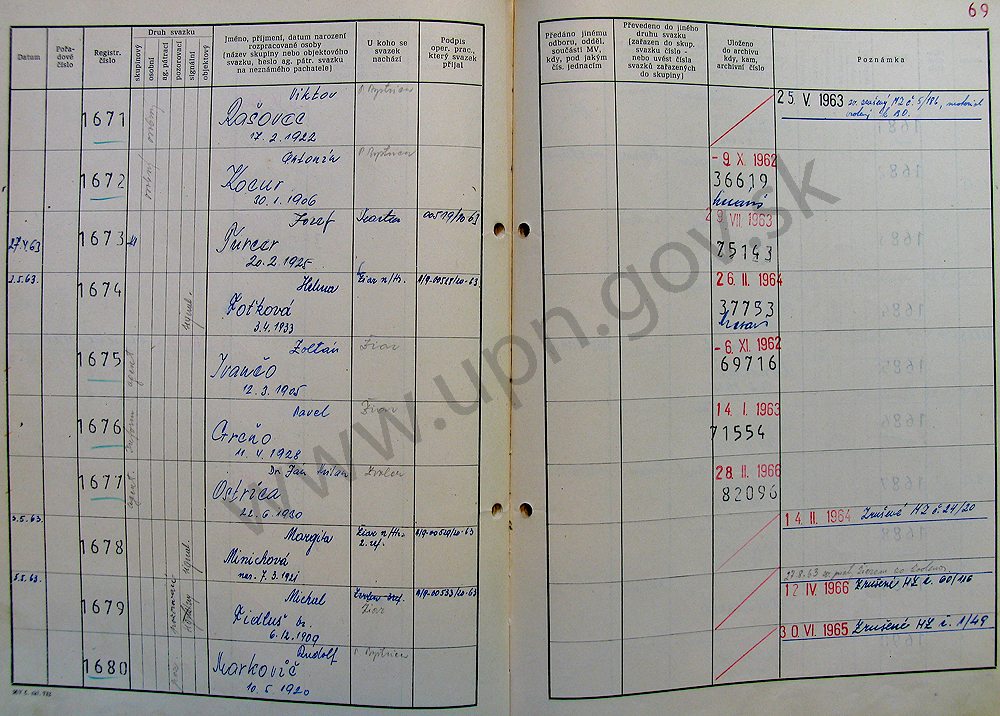 69
Datum
Pořa-
dové
číslo
Registr.
číslo
Druh svazku
skupinový
osobní
ag. pátrací
pozorovací
signální
objektový
Jméno, příjmení, datum narození
rozpracované osoby
(název skupiny nebo objektového
svazku, heslo ag. pátr. svazku
na neznámého pachatele)
U koho se
svazek
nachází
Podpis
oper. prac.,
který svazek
přijal
Předáno jinému
odboru, odděl.
součásti MV,
kdy, pod jakým
čís. jednacím
Převedeno do jiného
druhu svazku
(zařazen do skup.
svazku číslo -
nebo uvést čísla
svazků zařazených
do skupiny)
Uloženo
do archivu
kdy, kam,
archivní číslo
Poznámka
1671
osobný
Viktor
Rašovec
17. 2. 1922
P. Bystrica
25. V. 1963
1672
osobný
Antonín
Kocur
30. 1. 1906
P. Bystrica
- 9. X. 1962
36619
27.4.63
1673
Jozef
Turcer
20. 2. 1925
Martin
00519/20-63
29. VII. 1963
75143
3.5.63.
1674
signal.
Helena
Foťková
3.4. 1933
Žiar n/Hr.
A/9-00529/20-63
26. II. 1964
37753
1675
agent
Zoltán
Ivančo
12. 3. 1905
Žiar
- 6. XI. 1962
69716
1676
inform.
Pavel
Greňo
11. 4. 1928
Žiar
14. I. 1963
71554
1677
agent
Dr. Jan Milan
Ostrica
22. 6. 1930
Zvolen
28. II. 1966
82096
3.5.63.
1678
signal.
Margita
Minichová
nar. 7. 3. 1921
Žiar n/Hr.
2. ref.
A/9-00529/20-63
14. II. 1964 Zrušené HZ č. 24/20
5.5.63.
1679
Michal
Fidluš
6. 12. 1909
Žiar
A/9-00533/20-63
27.8.63
12 IV. 1966 Zrušené HZ č. 60/46
1680
Rudolf
Markovič
10. 5. 1920
P. Bystrica
30. VI. 1965 Zrušené HZ č. 1/49
www.upn.gov.sk